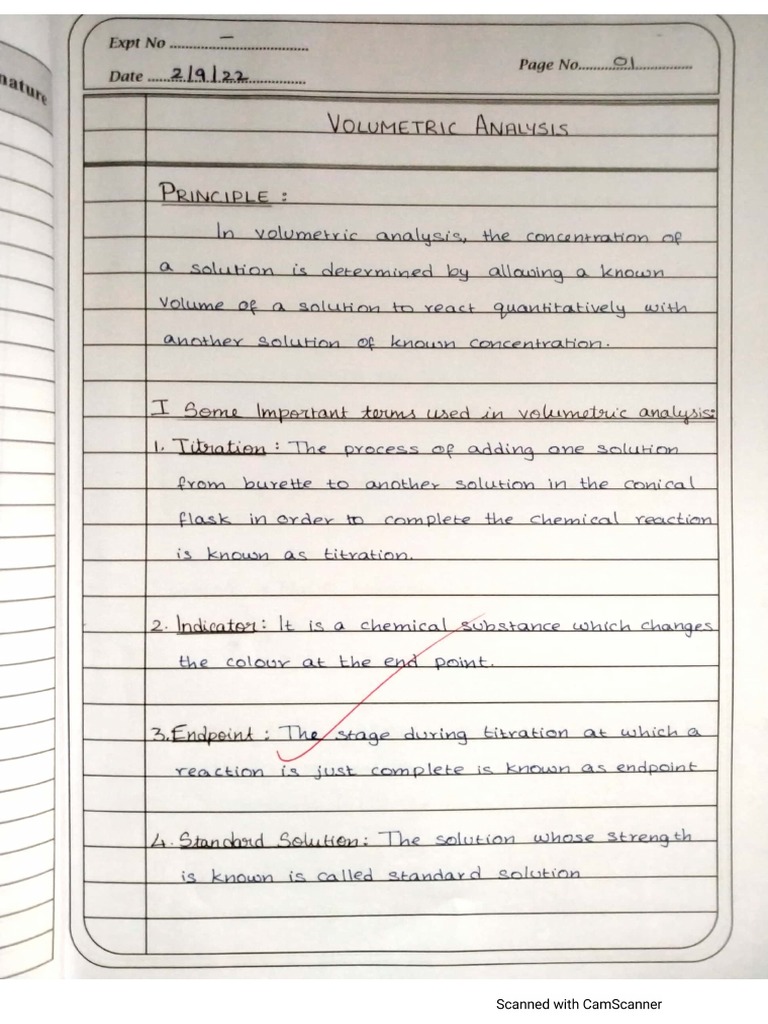 nature
Expt No ............–....................
Date ......2/9/22...............
Page No............01...............
VOLUMETRIC ANALYSIS
PRINCIPLE :
In volumetric analysis, the concentration of
a solution is determined by allowing a known
volume of a solution to react quantitatively with
another solution of known concentration.
I Some Important terms used in volumetric analysis:
1. Titration : The process of adding one solution
from burette to another solution in the conical
flask in order to complete the chemical reaction
is known as titration.
2. Indicator : It is a chemical substance which changes
the colour at the end point.
3. Endpoint : The stage during titration at which a
reaction is just complete is known as endpoint
4. Standard Solution : The solution whose strength
is known is called standard solution
Scanned with CamScanner